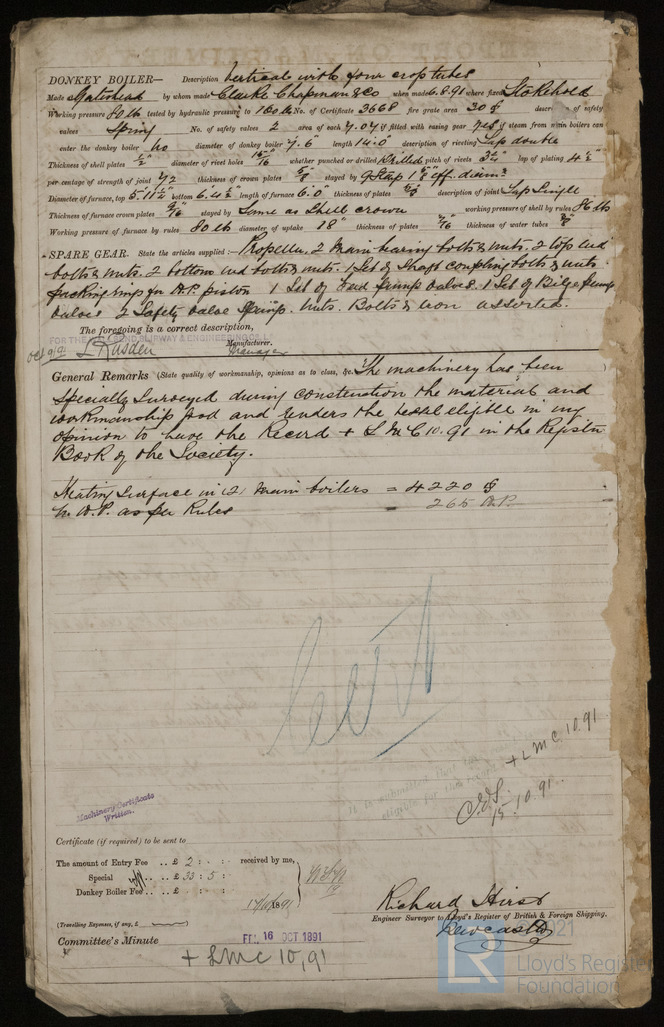 DONKEY BOILER— Description Vertical with four cross tubes
Made Gateshead by whom made Clarke Chapman & Co when made 6.8.91 where fixed Stokehold
Working pressure 80 lb tested by hydraulic pressure to 160 lbs No. of Certificate 3668 fire grate area 30 descr- of safety
valves Spring No. of safety valves 2 area of each 7.07 if fitted with easing gear yes if steam from main boilers can
enter the donkey boiler No diameter of donkey boiler 7.6" length 14.0" description of riveting Lap double
Thickness of shell plates 1/2" diameter of rivet holes 15/16" whether punched or drilled Drilled pitch of rivets 3 1/4" lap of plating 4 1/2"
per centage of strength of joint 72 thickness of crown plates 5/8 stayed by
Diameter of furnace, top 5'.11 1/4" bottom 6'.4 1/2" length of furnace 6'.0" thickness of plates description of joint Lap Single
Thickness of furnace crown plates 9/16 stayed by Same as Shell crown working pressure of shell by rules 86 lb
Working pressure of furnace by rules 80 lb diameter of uptake 18" thickness of plates 7/16 thickness of water tubes 3/8
SPARE GEAR. State the articles supplied:— Propeller. 2 Main bearing bolts & nuts. 2 top end
bolts & nuts. 2 bottom end bolts & nuts. 1 Set of Shaft coupling bolts & nuts
packing rings for H.P. piston 1 Set of Feed pump valves. 1 Set of Bilge pump
valves 2 Safety valve Springs. Nuts. Bolts & Iron assorted.
The foregoing is a correct description,
Manufacturer.
Manager
General Remarks (State quality of workmanship, opinions as to class, &c. The machinery has been
Specially Surveyed during construction the material and
workmanship good and renders the vessel eligible in my
opinion to have the Record + L M C 10.91 in the Register
Book of the Society.
Heating Surface in (2) Main boilers = 4220
N.H.P. as per Rules = 265 H.P.
Cert
+ L M C 10.91
15.10.91
It is submitted that
eligible for
Machinery Certificate
Written.
Certificate (if required) to be sent to
The amount of Entry Fee .. £ 2 : - : received by me,
Special .. £ 33 : 5 :
Donkey Boiler Fee .. £ : :
1891
Richard Hirst
Engineer Surveyor to Lloyd's Register of British & Foreign Shipping.
(Travelling Expenses, if any, £ )
Newcastle
Committee's Minute
FRI. 16 OCT 1891
+ LMC 10,91
2021
LR
Lloyd's Register
Foundation